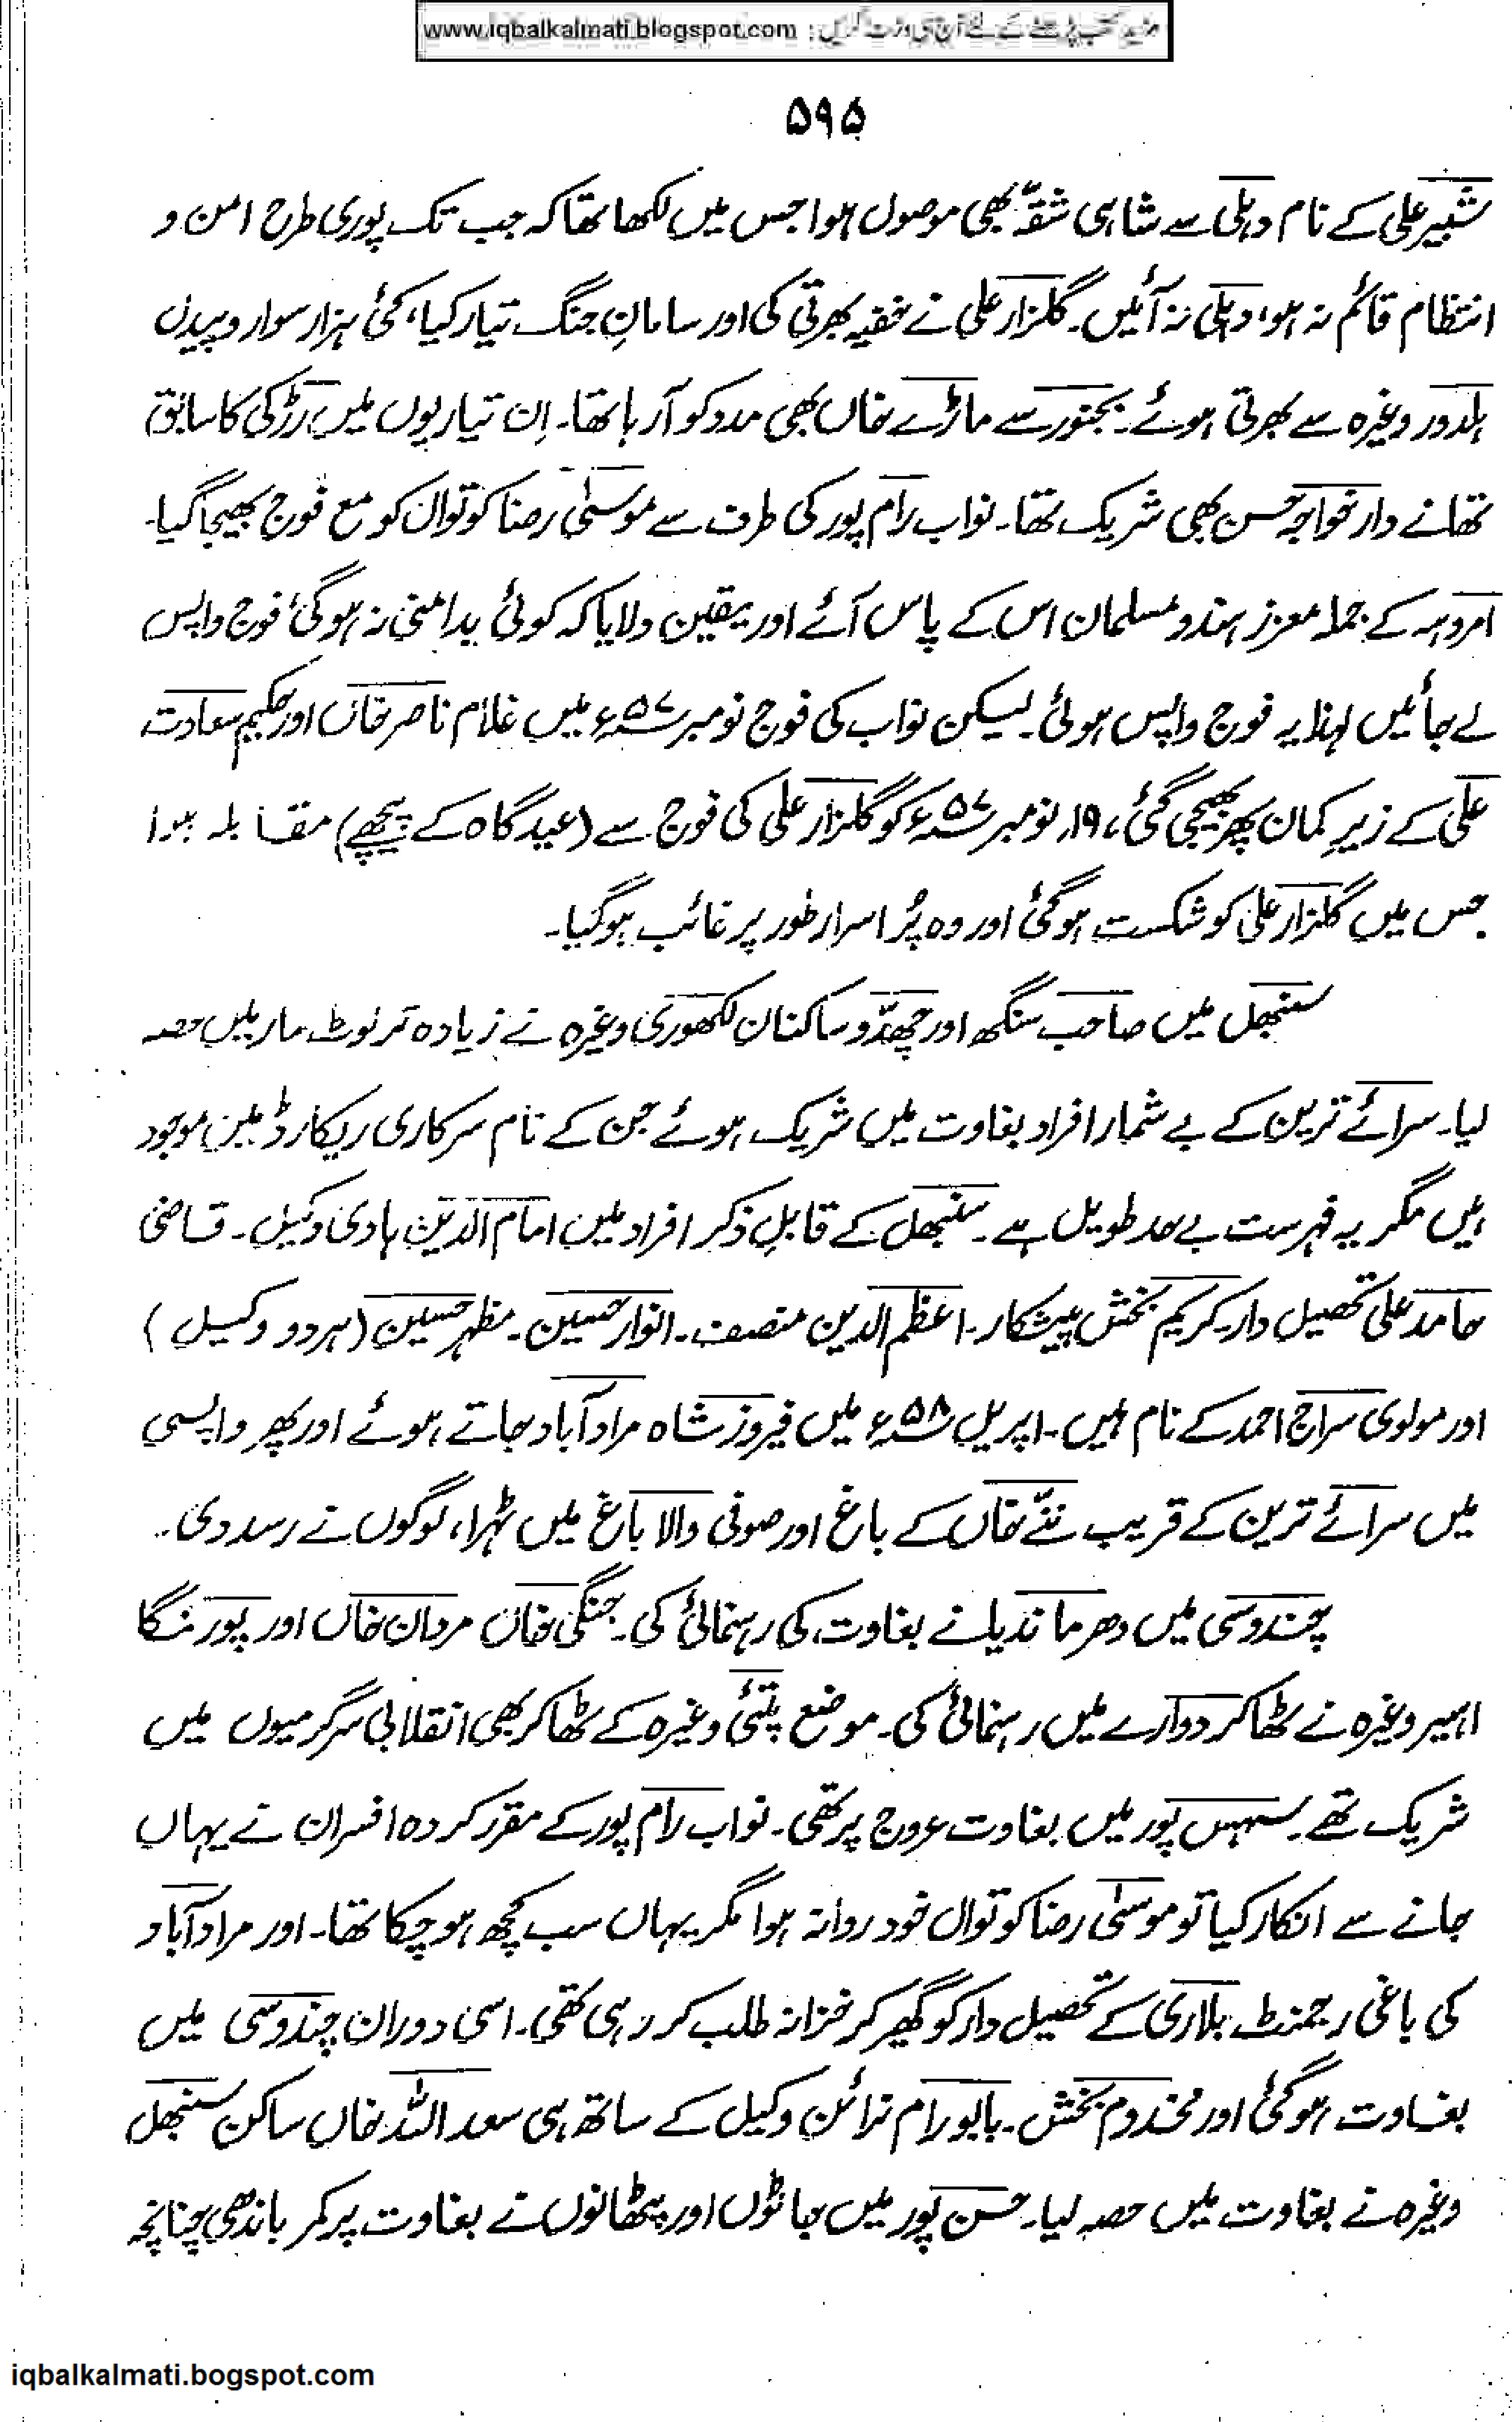 مزید کتب پڑھنے کے لئے آج ہی وزٹ کریں : www.iqbalkalmati.blogspot.com
۵۹۵
شبیر علی کے نام دہلی سے شاہی شقّہ بھی موصول ہوا جس میں لکھا تھا کہ جب تک پوری طرح امن و
انتظام قائم نہ ہو، دہلی نہ آئیں۔ گلزار علی نے خفیہ بھرتی کی اور سامانِ جنگ تیار کیا، کئی ہزار سوار و پیدل
ہلدور وغیرہ سے بھرتی ہوئے۔ بجنور سے ماڑے خاں بھی مدد کو آ رہا تھا۔ اِن تیاریوں میں رڑکی کا سابق
تھانے دار خواجہ حسن بھی شریک تھا۔ نواب رام پور کی طرف سے موسیٰ رضا کوتوال کو مع فوج بھیجا گیا۔
امروہہ کے جملہ معزز ہندو مسلمان اس کے پاس آئے اور یقین دلایا کہ کوئی بدامنی نہ ہوگی، فوج واپس
لے جائیں لہٰذا یہ فوج واپس ہوئی۔ لیکن نواب کی فوج نومبر ۵۷ء میں غلام ناصر خاں اور حکیم سعادت
علی کے زیرِ کمان پھر بھیجی گئی، ۱۹ نومبر ۵۷ء کو گلزار علی کی فوج سے (عیدگاہ کے پیچھے) مقابلہ ہوا
جس میں گلزار علی کو شکست ہوگئی اور وہ پُر اسرار طور پر غائب ہوگیا۔
سنبھل میں صاحب سنگھ اور چھدّو ساکنان لکھوری وغیرہ نے زیادہ تر لوٹ مار میں حصہ
لیا۔ سرائے ترین کے بے شمار افراد بغاوت میں شریک ہوئے جن کے نام سرکاری ریکارڈ میں موجود
ہیں مگر یہ فہرست بے حد طویل ہے۔ سنبھل کے قابلِ ذکر افراد میں امام الدین ہادی وکیل۔ قاضی
حامد علی تحصیل دار۔ کریم بخش پیشکار۔ اعظم الدین منصف۔ انوار حسین۔ مظہر حسین (ہر دو وکیل)
اور مولوی سراج احمد کے نام ہیں۔ اپریل ۵۸ء میں فیروز شاہ مراد آباد جاتے ہوئے اور پھر واپسی
میں سرائے ترین کے قریب ننّے خاں کے باغ اور صوفی والا باغ میں ٹہرا، لوگوں نے رسد دی۔
چندوسی میں دھرما ندیا نے بغاوت کی رہنمائی کی۔ جنگی خاں مردان خاں اور پورن گا
اہیر وغیرہ نے ٹھاکر دوارے میں رہنمائی کی۔ موضع پتئی وغیرہ کے ٹھاکر بھی انقلابی سرگرمیوں میں
شریک تھے۔ سہس پور میں بغاوت عروج پر تھی۔ نواب رام پور کے مقرر کردہ افسران نے یہاں
جانے سے انکار کیا تو موسیٰ رضا کوتوال خود روانہ ہوا مگر یہاں سب کچھ ہو چکا تھا۔ اور مراد آباد
کی باغی رجمنٹ بلاری کے تحصیل دار کو گھیر کر خزانہ طلب کر رہی تھی۔ اسی دوران چندوسی میں
بغاوت ہوگئی اور مخدوم بخش۔ بابو رام نرائن وکیل کے ساتھ ہی سعد اللہ خاں ساکن سنبھل
وغیرہ نے بغاوت میں حصہ لیا۔ حسن پور میں جاٹوں اور پٹھانوں نے بغاوت پر کمر باندھی چنانچہ
iqbalkalmati.bogspot.com